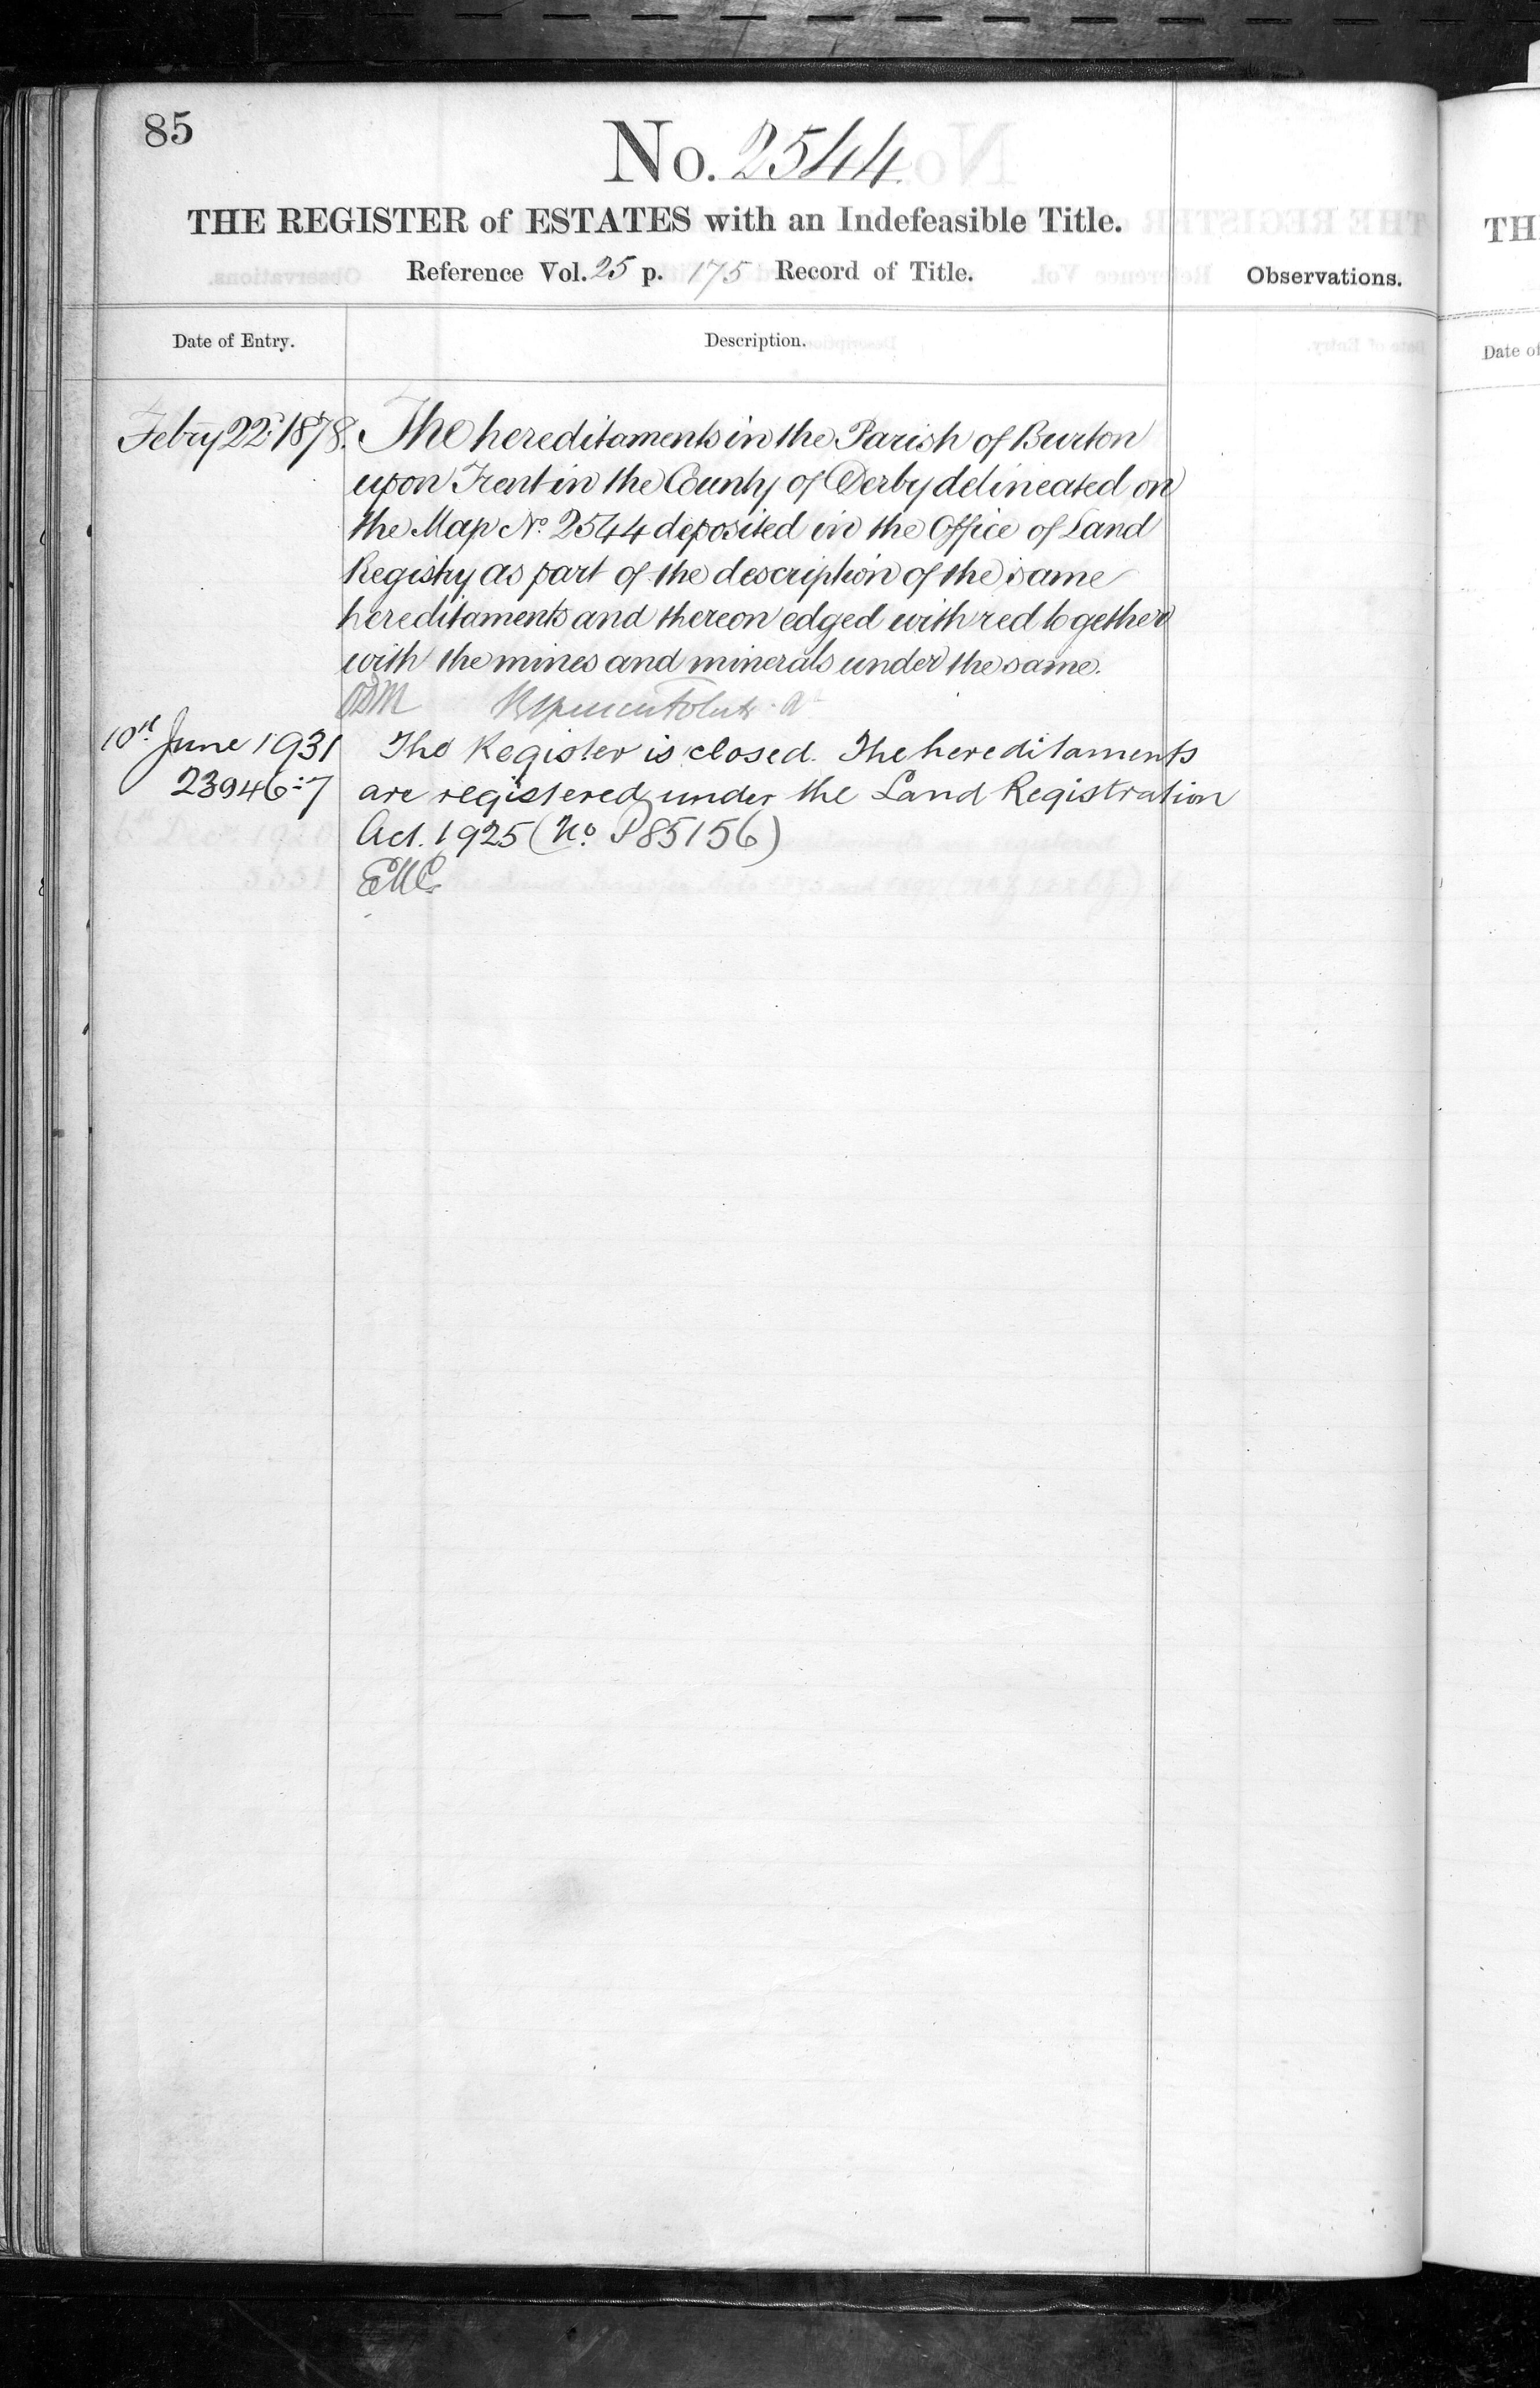 85
No. 2544
THE REGISTER of ESTATES with an Indefeasible Title.
Reference Vol. 25 p. 175 Record of Title.
Observations.
Date of Entry.
Description.
Febry 22. 1878. The hereditaments in the Parish of Burton
upon Trent in the County of Derby delineated on
the Map No. 2544 deposited in the Office of Land
Registry as part of the description of the same
hereditaments and thereon edged with red together
with the mines and minerals under the same.
10th June 1931 The Register is closed. The hereditaments
23946:7 are registered under the Land Registration
Act. 1925 (No. P85156)
TH
Date of